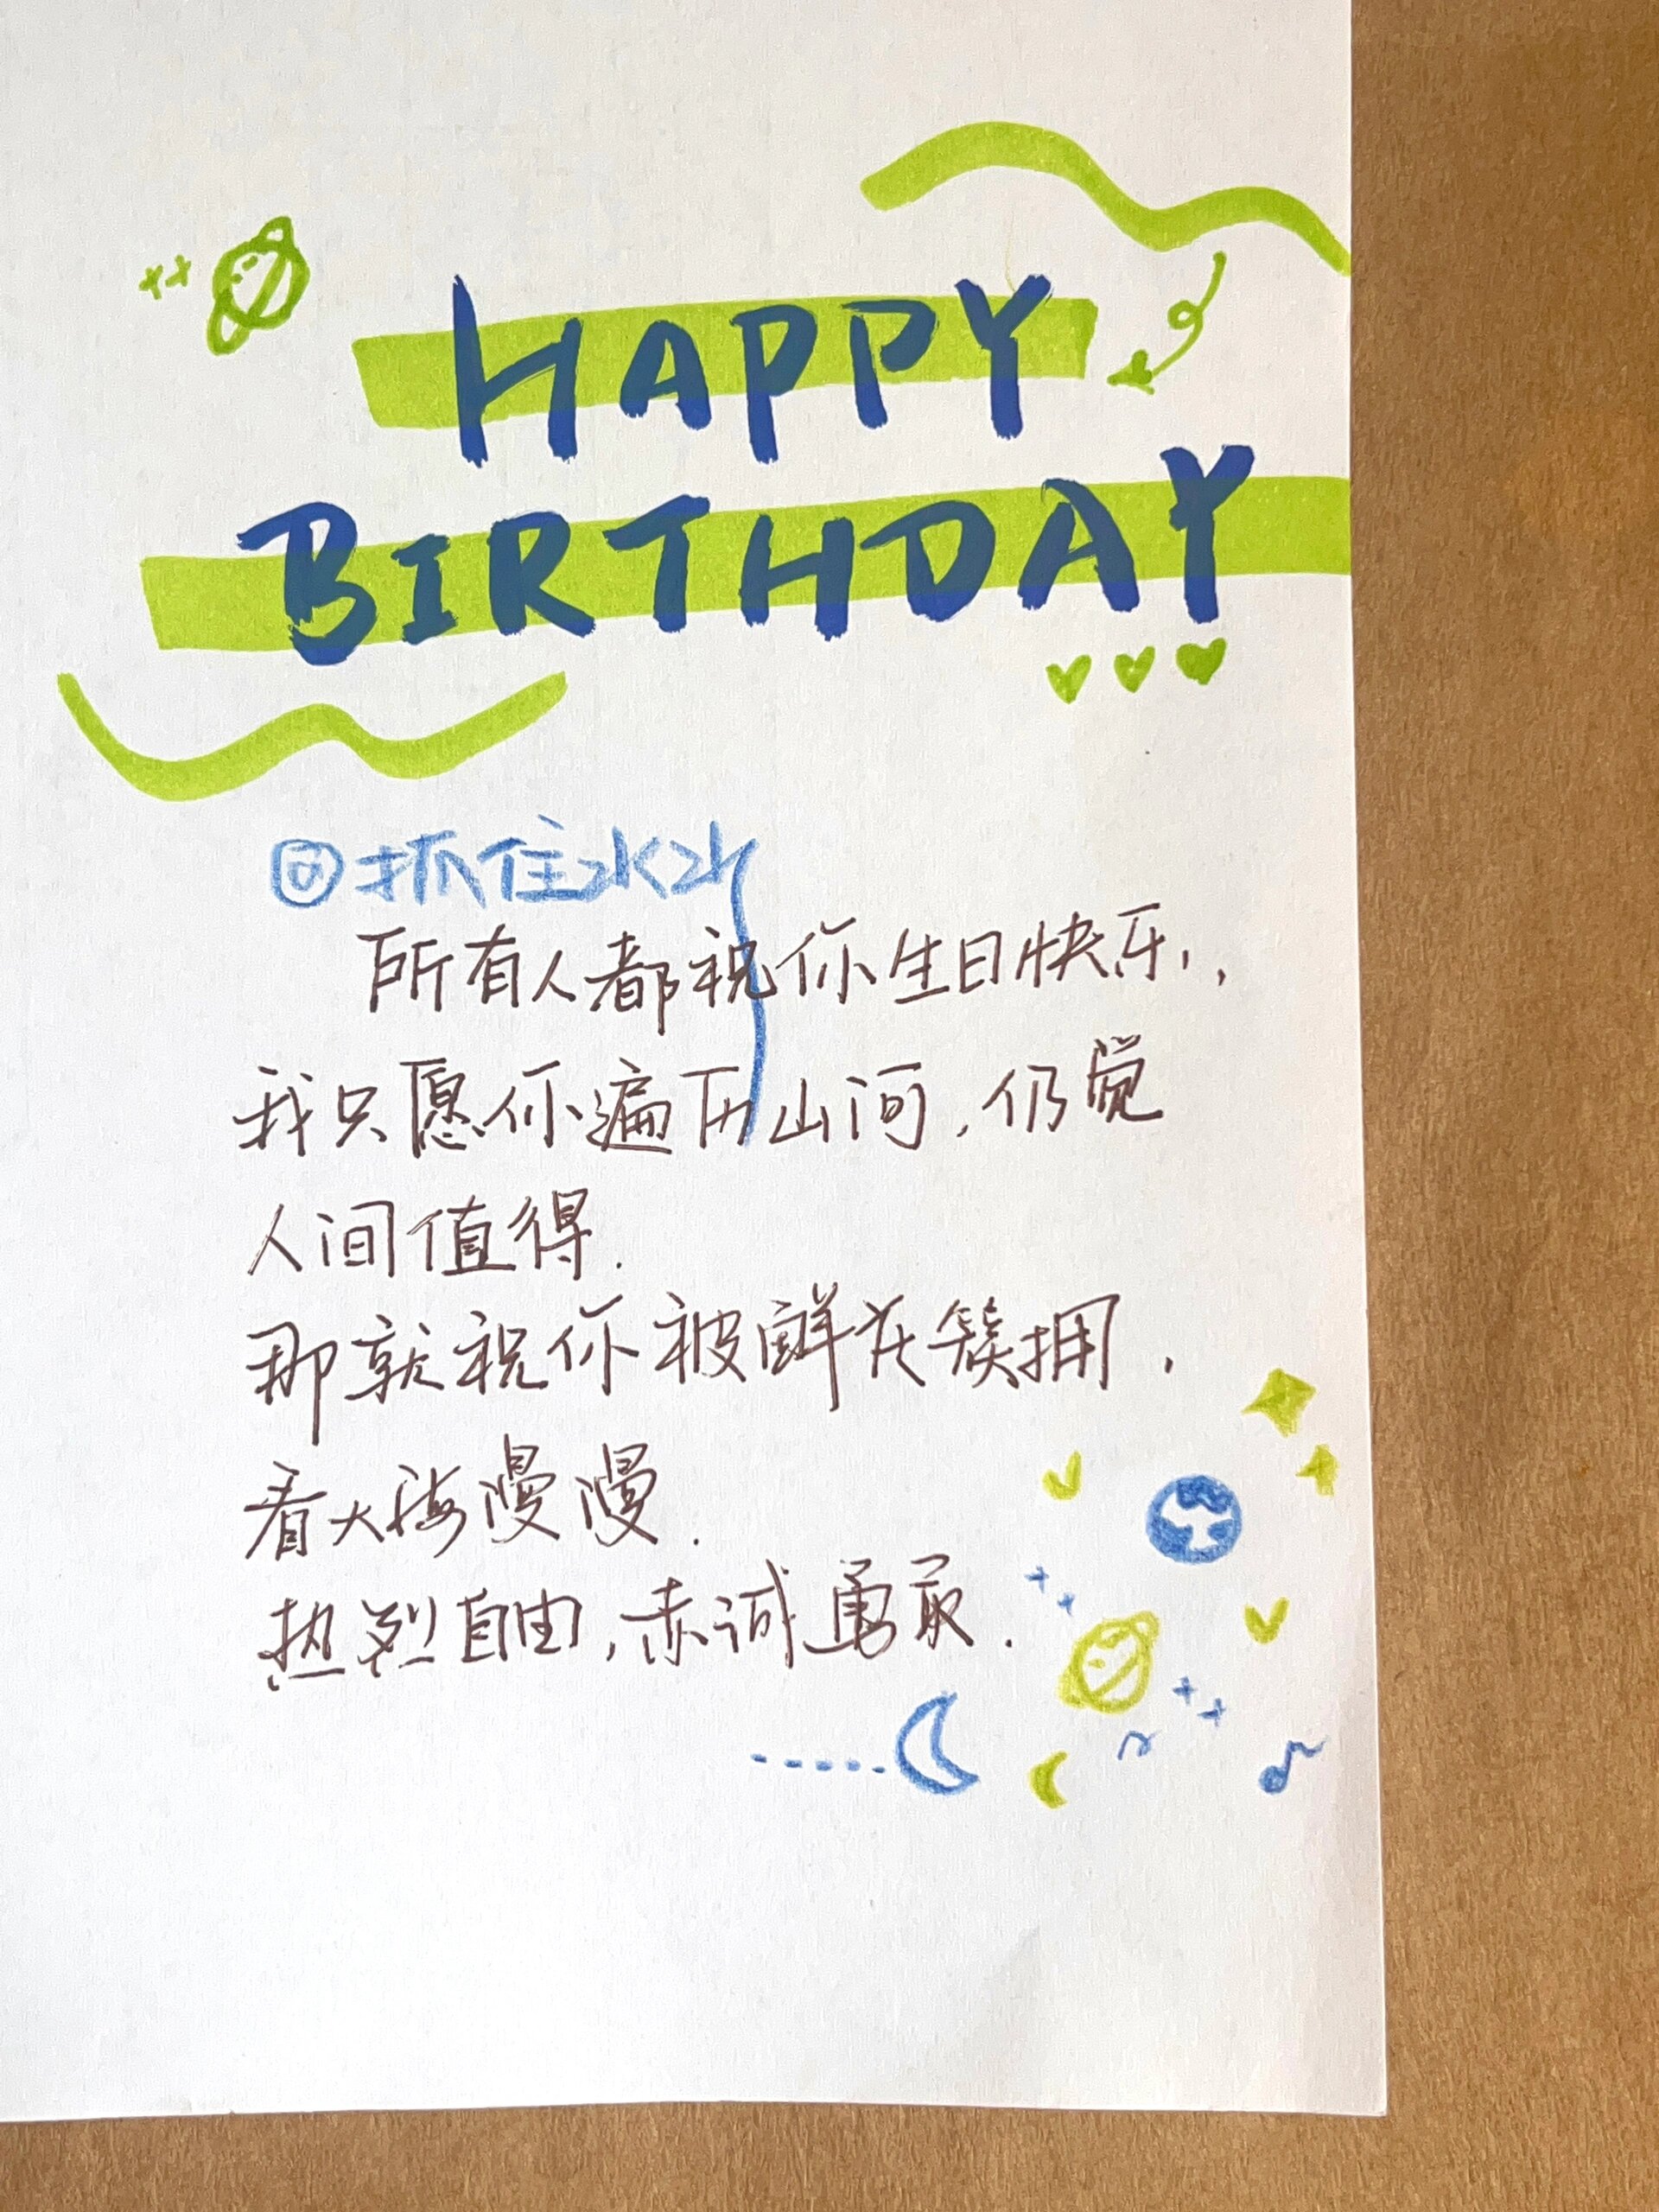 HAPPY
BIRTHDAY
@抓住水水
所有人都祝你生日快乐,
我只愿你遍历山河,仍觉
人间值得.
那就祝你被鲜花簇拥,
看大海漫漫.
热烈自由,赤诚勇敢.